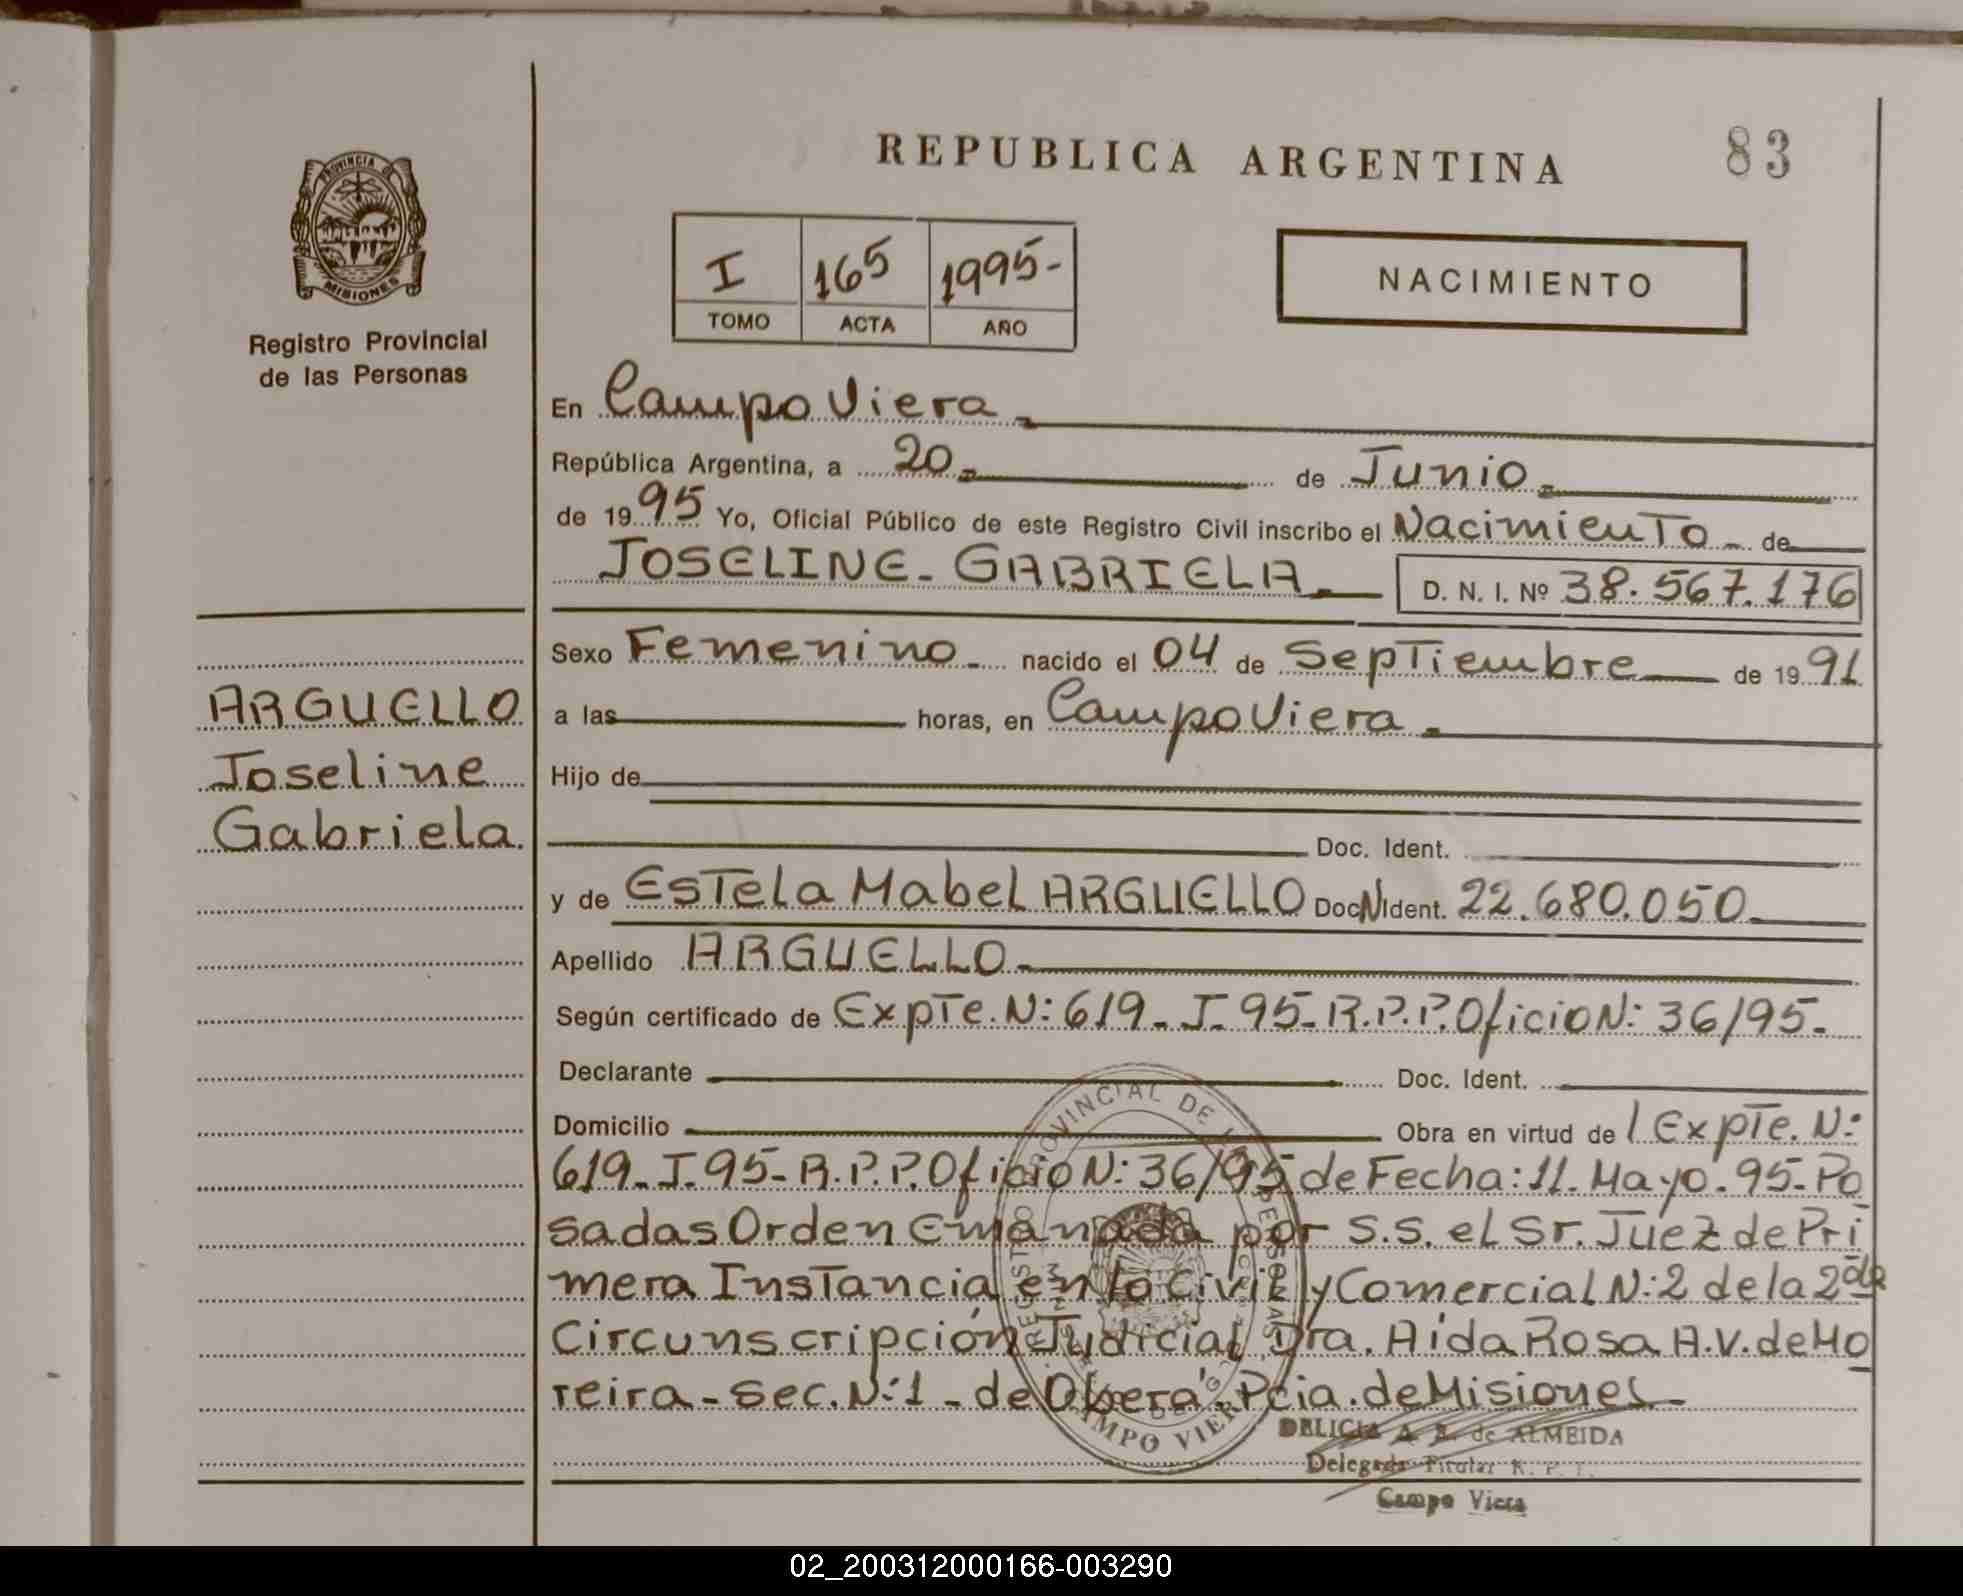 REPUBLICA ARGENTINA
83
PROVINCIA
MISIONES
Registro Provincial
de las Personas
I 165 1995-
TOMO ACTA AÑO
NACIMIENTO
En Campo Viera
República Argentina, a 20 de Junio
de 1995 Yo, Oficial Público de este Registro Civil inscribo el Nacimiento de
JOSELINE GABRIELA D. N. I. Nº 38.567.176
Sexo Femenino nacido el 04 de Septiembre de 1991
ARGUELLO
Joseline
Gabriela
a las horas, en Campo Viera
Hijo de
Doc. Ident.
y de Estela Mabel ARGUELLO Doc. N Ident. 22.680.050
Apellido ARGUELLO
Según certificado de Expte. N: 619-J-95-R.P.P. Oficio N: 36/95-
Declarante Doc. Ident.
Domicilio Obra en virtud de l Expte. N:
619-J-95-R.P.P. Oficio N: 36/95 de Fecha: 11. Mayo. 95-Po
sadas Orden Emanada por S.S. el Sr. Juez de Pri
mera Instancia en lo Civil y Comercial N: 2 de la 2da
Circunscripción Judicial Dra. Aida Rosa A.V. de Mo
reira - Sec. N: 1 - de Oberá Pcia. de Misiones
REGISTRO PROVINCIAL DE LAS PERSONAS
CAMPO VIERA
DELICIA A. de ALMEIDA
Delegada Titular R. P.
Campo Viera
02_200312000166-003290